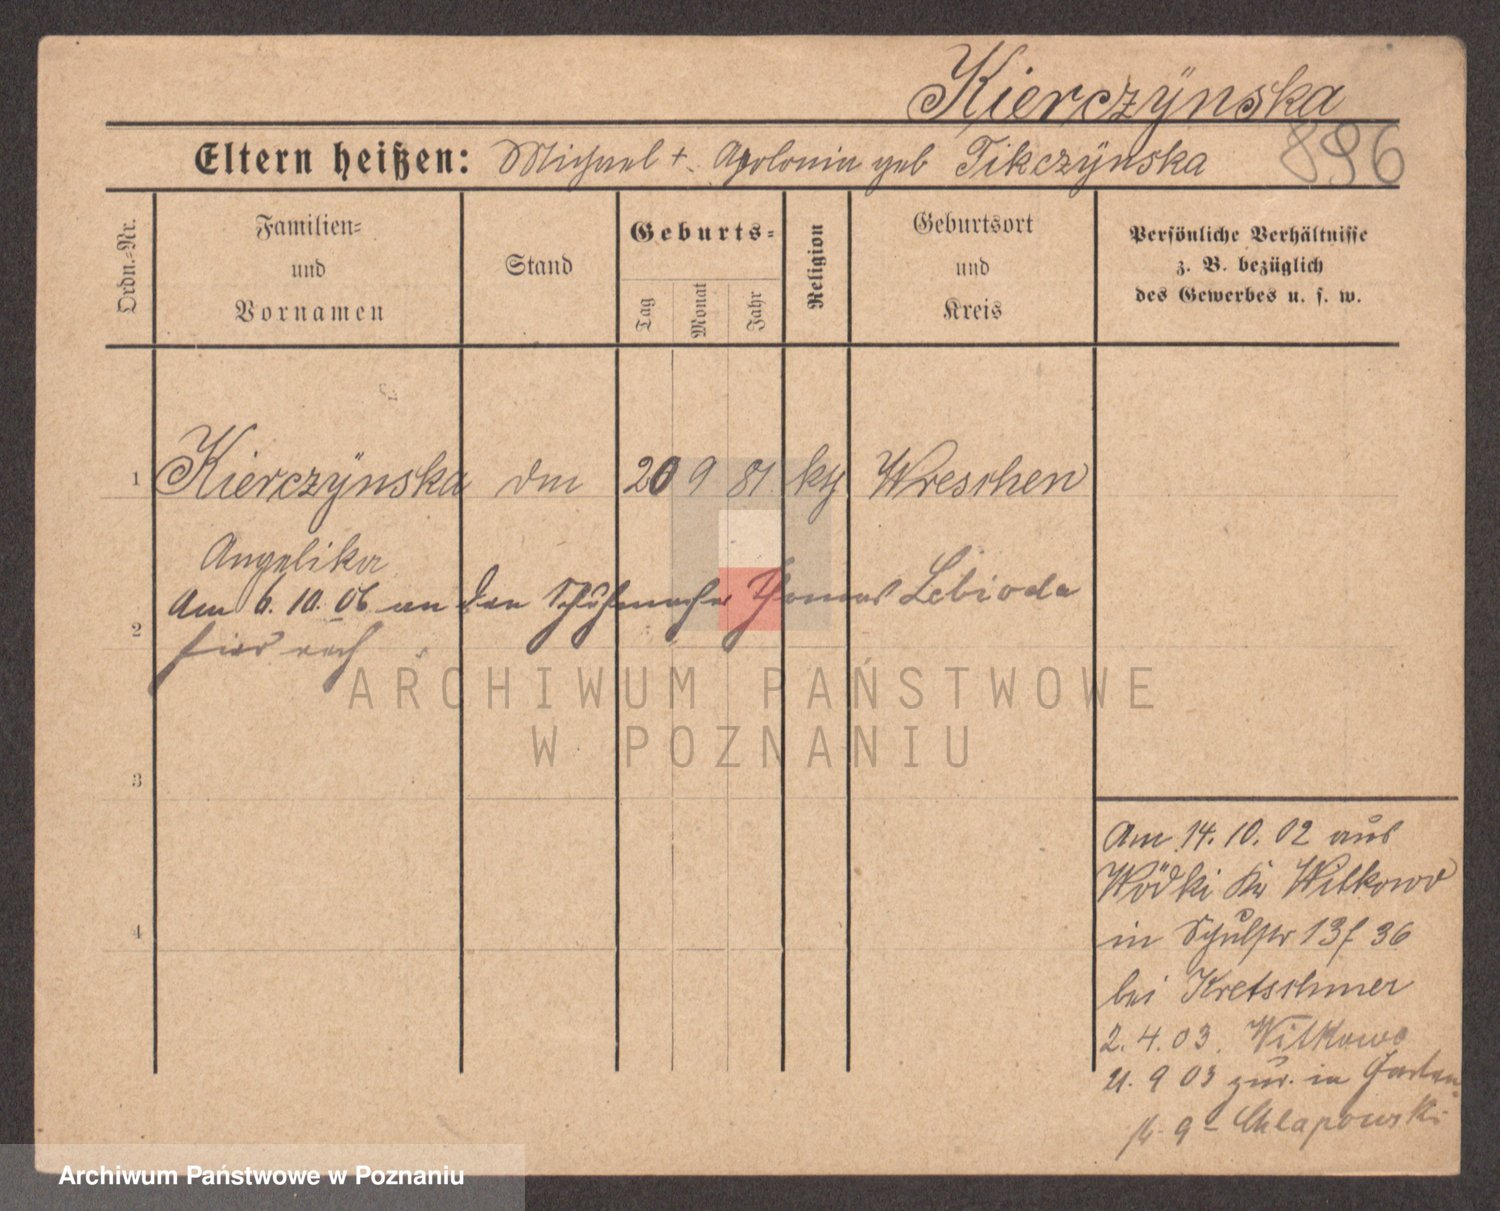 Kierczÿnska
896
Eltern heißen: Michael + Apolonia geb Tikczÿnska
Ordn.-Nr.
Familien-
und
Vornamen
Stand
Geburts-
Tag
Monat
Jahr
Religion
Geburtsort
und
Kreis
Persönliche Verhältnisse
z. B. bezüglich
des Gewerbes u. s. w.
1 Kierczÿnska 20 9 81. kth Wreschen
Angelika
Am 6. 10. 06 an den Schuhmacher Thomas Lebioda
2 hier
ARCHIWUM PAŃSTWOWE
W POZNANIU
3
4
Am 14. 10. 02 aus
Wódki Kr Witkowo
in Schulstr 13f 36
bei Kretschmer
2. 4. 03. Witkowo
21. 9 03 zur. in Garten
9 - Chlapowski
Archiwum Państwowe w Poznaniu